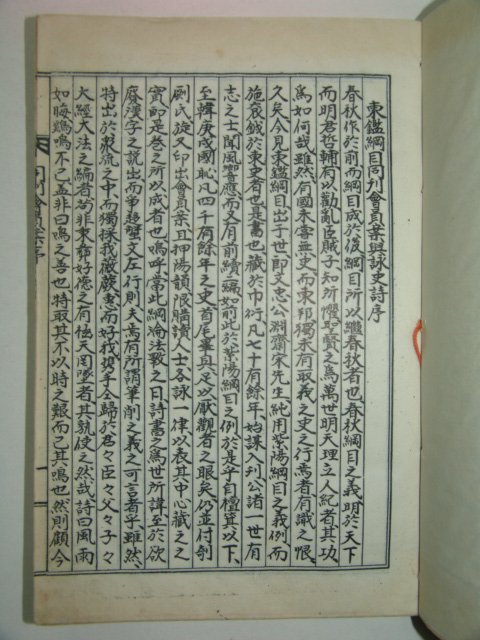 東鑑綱目同刋會員案與詠史詩序
春秋作於前而綱目成於後綱目所以繼春秋者也春秋綱目之義明於天下
而明君哲輔有以勸亂臣賊子知所懼聖賢之爲萬世明天理立人紀者其功
爲如何哉雖然有國來喜無史而東邦獨未有取義之史之行焉者有識之恨
久矣今見東鑑綱目出于世卽文忠公淵齋宋先生純用紫陽綱目之義例而
施袞鉞於東史者也是書也藏於巾衍凡七十有餘年始謀入刋公諸一世有
志之士聞風響應而又有前續編如前此於紫陽綱目之例於是乎自檀箕以下
至韓庚戌國恥凡四千有餘年之史首尾畢擧足以厭觀者之眼矣仍並付剞
劂氏旋又印出會員案且押陽韻限購讀人士各詠一律以表其中心藏之之
實卽是卷之所以成者也嗚乎當此綱淪法斁之日詩書之爲世所諱至於欲
廢漢字之說出而第趨蟹文左行則夫焉有所謂筆削之義之可言者乎雖然
特出於衆流之中而獨採我薇蕨惠而好我携手仝歸於君々臣々父々子々
大經大法之編者茲非東彛好德之有極天罔墜者其孰使之然哉詩曰風雨
如晦鷄鳴不已盖非曰鳴之吾也特取其不以時之艱而已其鳴也然則顧今